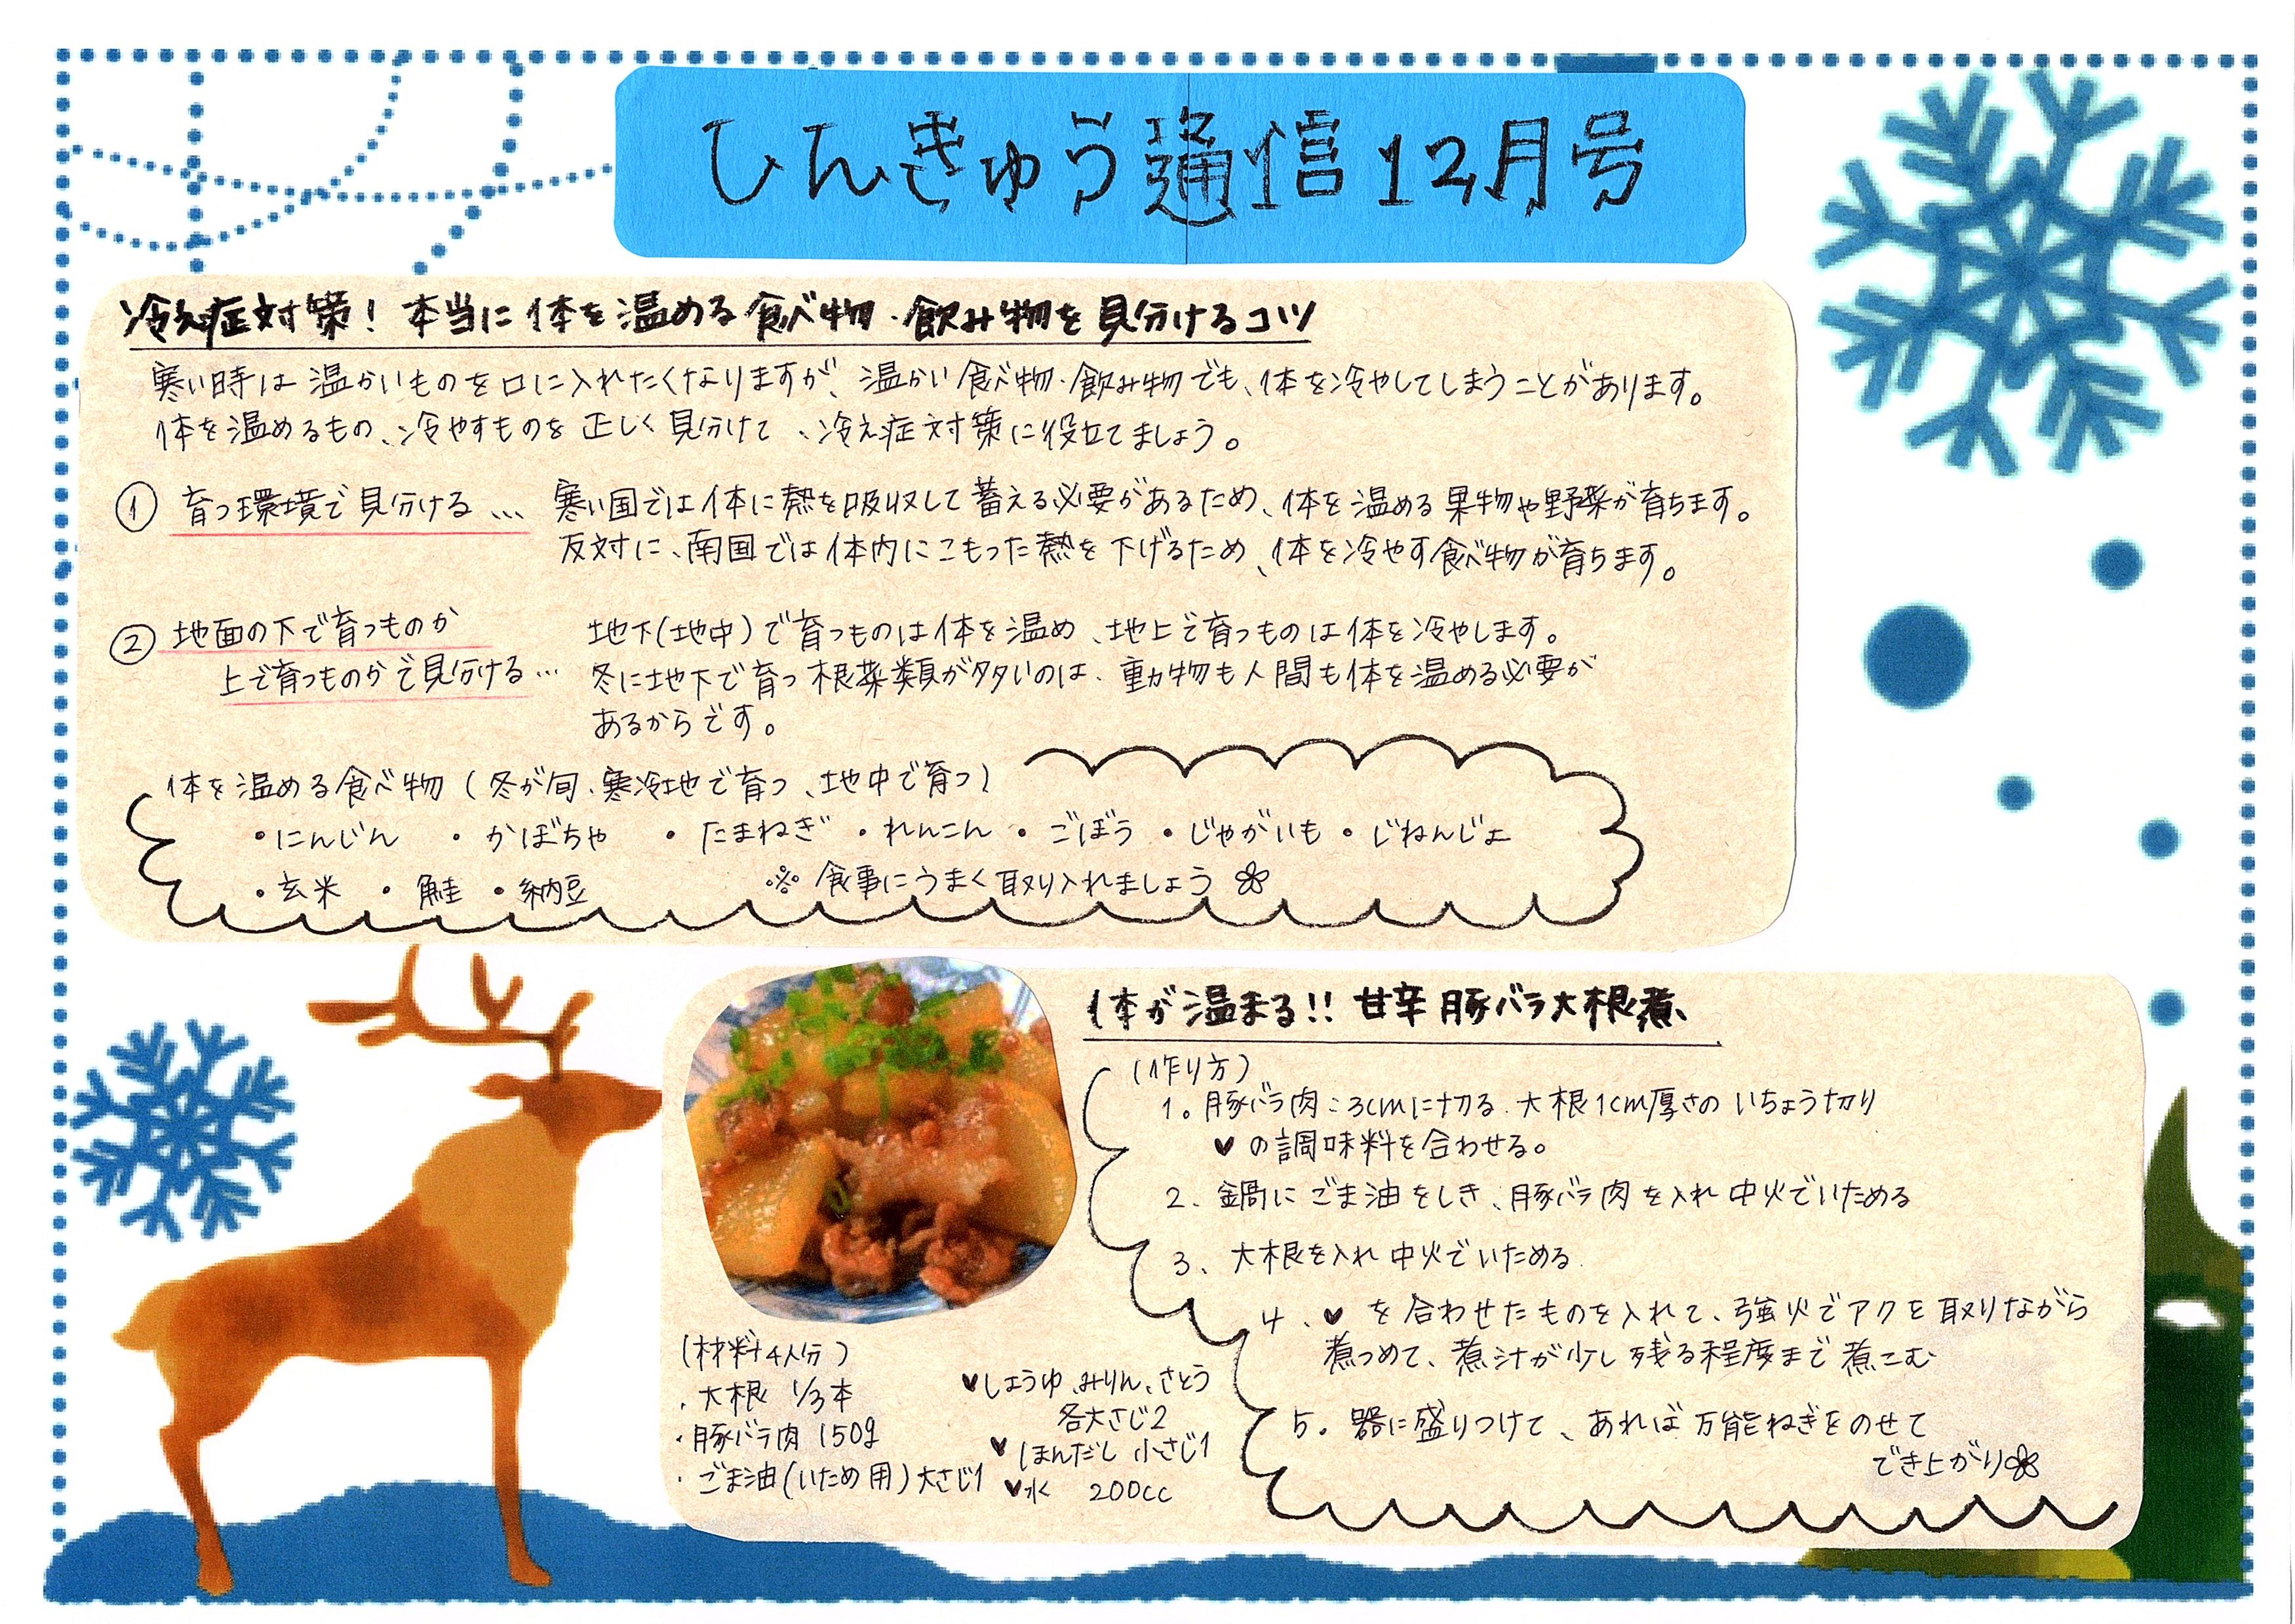 しんきゅう通信12月号
冷え症対策！本当に体を温める食べ物・飲み物を見分けるコツ
寒い時は温かいものを口に入れたくなりますが、温かい食べ物・飲み物でも、体を冷やしてしまうことがあります。
体を温めるもの、冷やすものを正しく見分けて、冷え症対策に役立てましょう。
① 育つ環境で見分ける… 寒い国では体に熱を吸収して蓄える必要があるため、体を温める果物や野菜が育ちます。
反対に、南国では体内にこもった熱を下げるため、体を冷やす食べ物が育ちます。
② 地面の下で育つものか
上で育つものかで見分ける…
地下(地中)で育つものは体を温め、地上で育つものは体を冷やします。
冬に地下で育つ根菜類が多いのは、動物も人間も体を温める必要が
あるからです。
体を温める食べ物(冬が旬、寒冷地で育つ、地中で育つ)
・にんじん ・かぼちゃ ・たまねぎ ・れんこん ・ごぼう ・じゃがいも ・じねんじょ
・玄米 ・鮭 ・納豆 ※食事にうまく取り入れましょう
体が温まる!! 甘辛豚バラ大根煮
(作り方)
1。豚バラ肉:3cmに切る、大根1cm厚さのいちょう切り
♥の調味料を合わせる。
2、鍋にごま油をしき、豚バラ肉を入れ中火でいためる
3、大根を入れ中火でいためる
4、♥を合わせたものを入れて、強火でアクを取りながら
煮つめて、煮汁が少し残る程度まで煮こむ
5。器に盛りつけて、あれば万能ねぎをのせて
でき上がり
(材料4人分)
・大根 1/3本
・豚バラ肉 150g
・ごま油(いため用)大さじ1
♥しょうゆ、みりん、さとう
各大さじ2
♥ほんだし 小さじ1
♥水 200cc